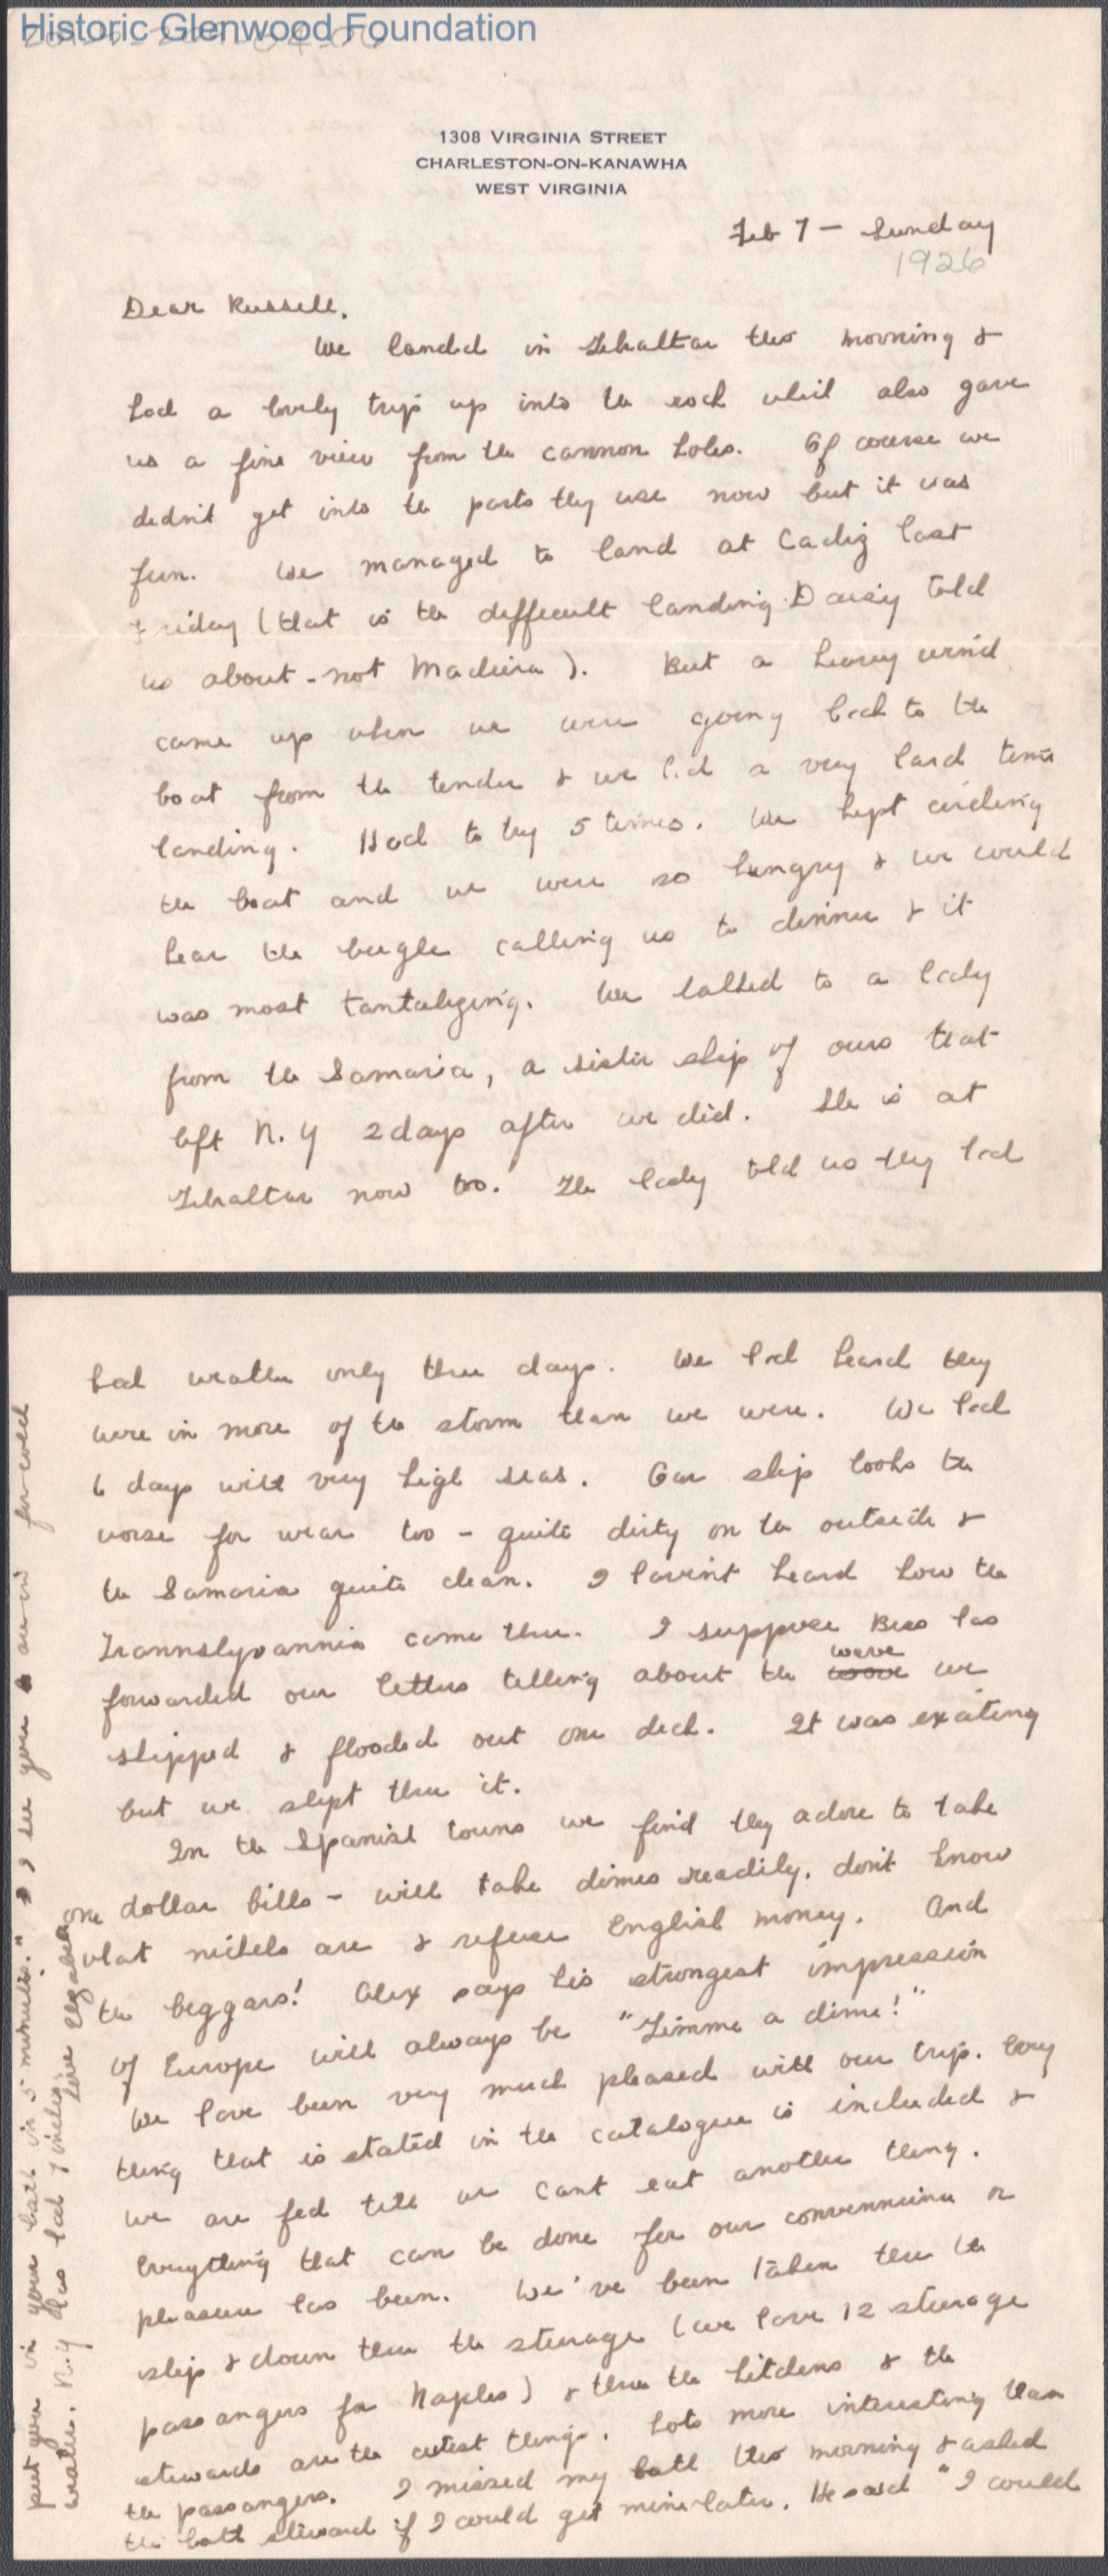 Historic Glenwood Foundation
1308 VIRGINIA STREET
CHARLESTON-ON-KANAWHA
WEST VIRGINIA
Feb 7 - Sunday
1926
Dear Russell.
We landed in Gibraltar this morning &
had a lovely trip up into the rock which also gave
us a fine view from the cannon holes. Of course we
didn't get into the parts they use now but it was
fun. We managed to land at Cadiz last
Friday (that is the difficult landing Daisy told
us about - not Madiera). But a heavy wind
came up when we were going back to the
boat from the tender & we had a very hard time
landing. Had to try 5 times. We kept circling
the boat and we were so hungry & we could
hear the bugle calling us to dinner & it
was most tantalizing. We talked to a lady
from the Samaria, a sister ship of ours that
left N.Y 2 days after we did. She is at
Gibraltar now too. The lady told us they had
bad weather only three days. We had heard they
were in more of the storm than we were. We had
6 days with very high seas. Our ship looks the
worse for wear too - quite dirty on the outside &
the Samaria quite clean. I havint heard how the
Trannslyvannia came thru. I suppose Bess has
forwarded our letters telling about the wave we
shipped & flooded out one deck. It was exciting
but we slept thru it.
In the Spanish towns we find they adore to take
one dollar bills - will take dimes readily, don't know
what nickels are & refuse English money. And
the beggars! Alex says his strongest impression
of Europe will always be "Gimme a dime!"
We have been very much pleased with our trip. Every
thing that is stated in the catalogue is included &
we are fed till we cant eat another thing.
Everything that can be done for our convennienc or
pleasure has been. We've been taken thru the
ship & down thru the steerage (we have 12 steerage
passangers for Naples) & thru the kitchens & the
stewards are the cutest things. Lots more interesting than
the passangers. I missed my bath this morning & asked
the bath steward if I could get mine later. He said "I could
put you in your bath in 5 minutes." I see you are in for cold
weather. N.Y has had 7 inches.
Love Elizabeth